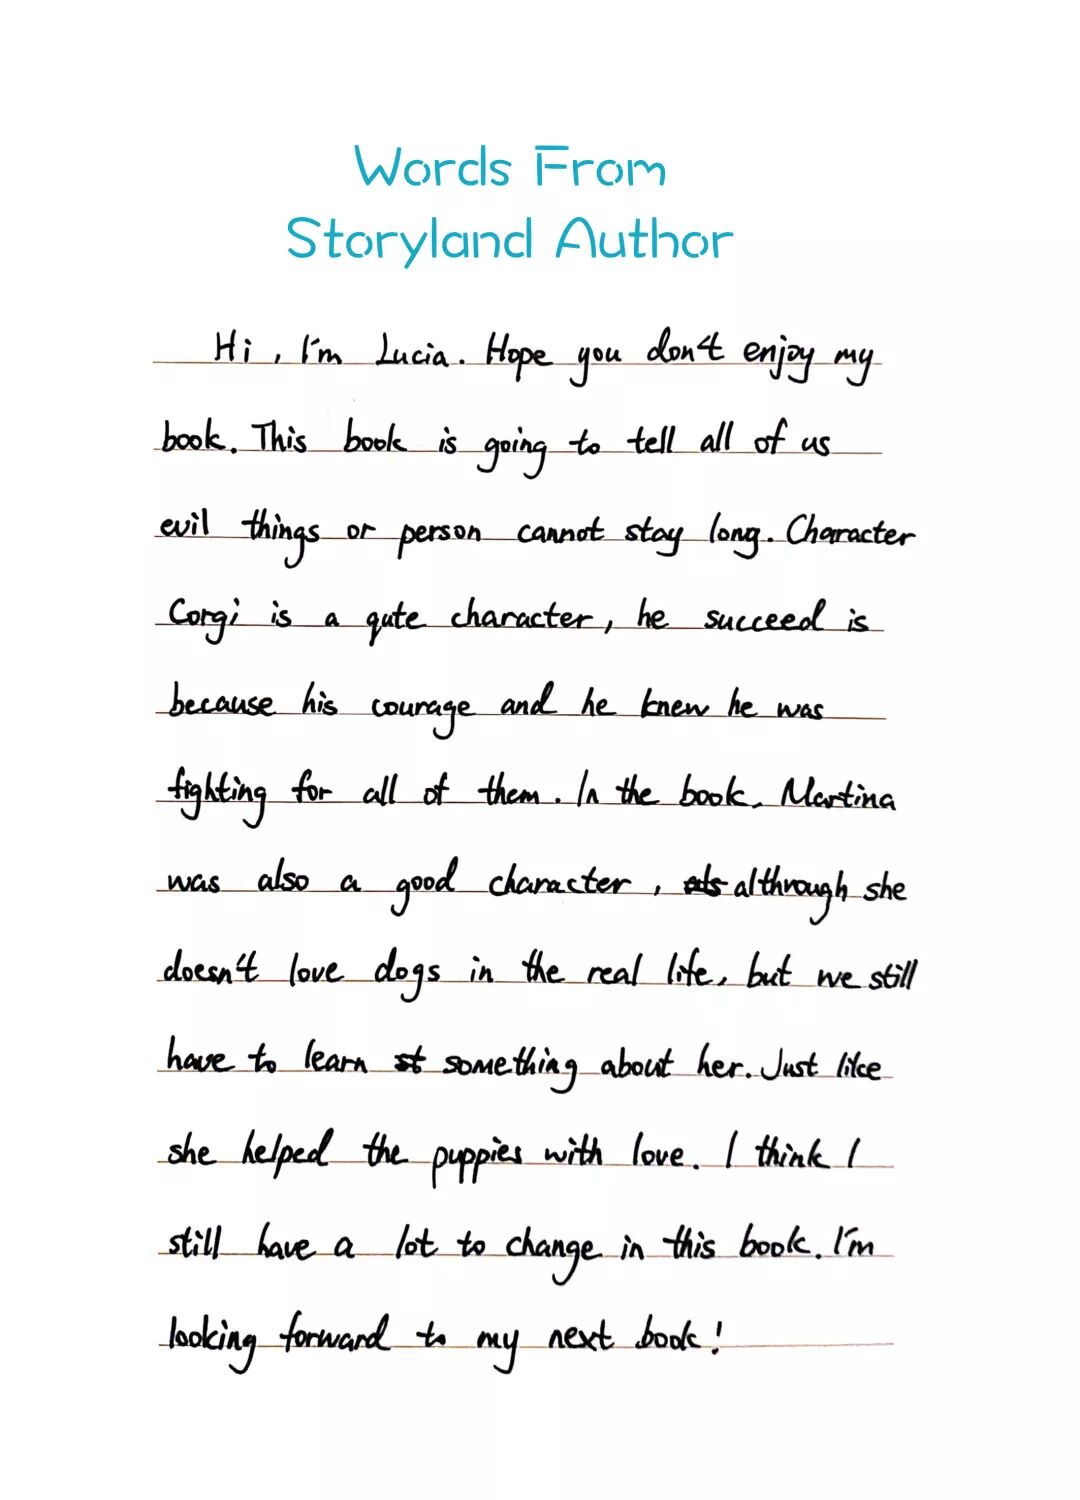 Words From
Storyland Author
Hi, I'm Lucia. Hope you don't enjoy my
book. This book is going to tell all of us
evil things or person cannot stay long. Character
Corgi is a qute character, he succeed is
because his courage and he knew he was
fighting for all of them. In the book, Martina
was also a good character, als althrough she
doesn't love dogs in the real life, but we still
have to learn st something about her. Just like
she helped the puppies with love. I think I
still have a lot to change in this book. I'm
looking forward to my next book!